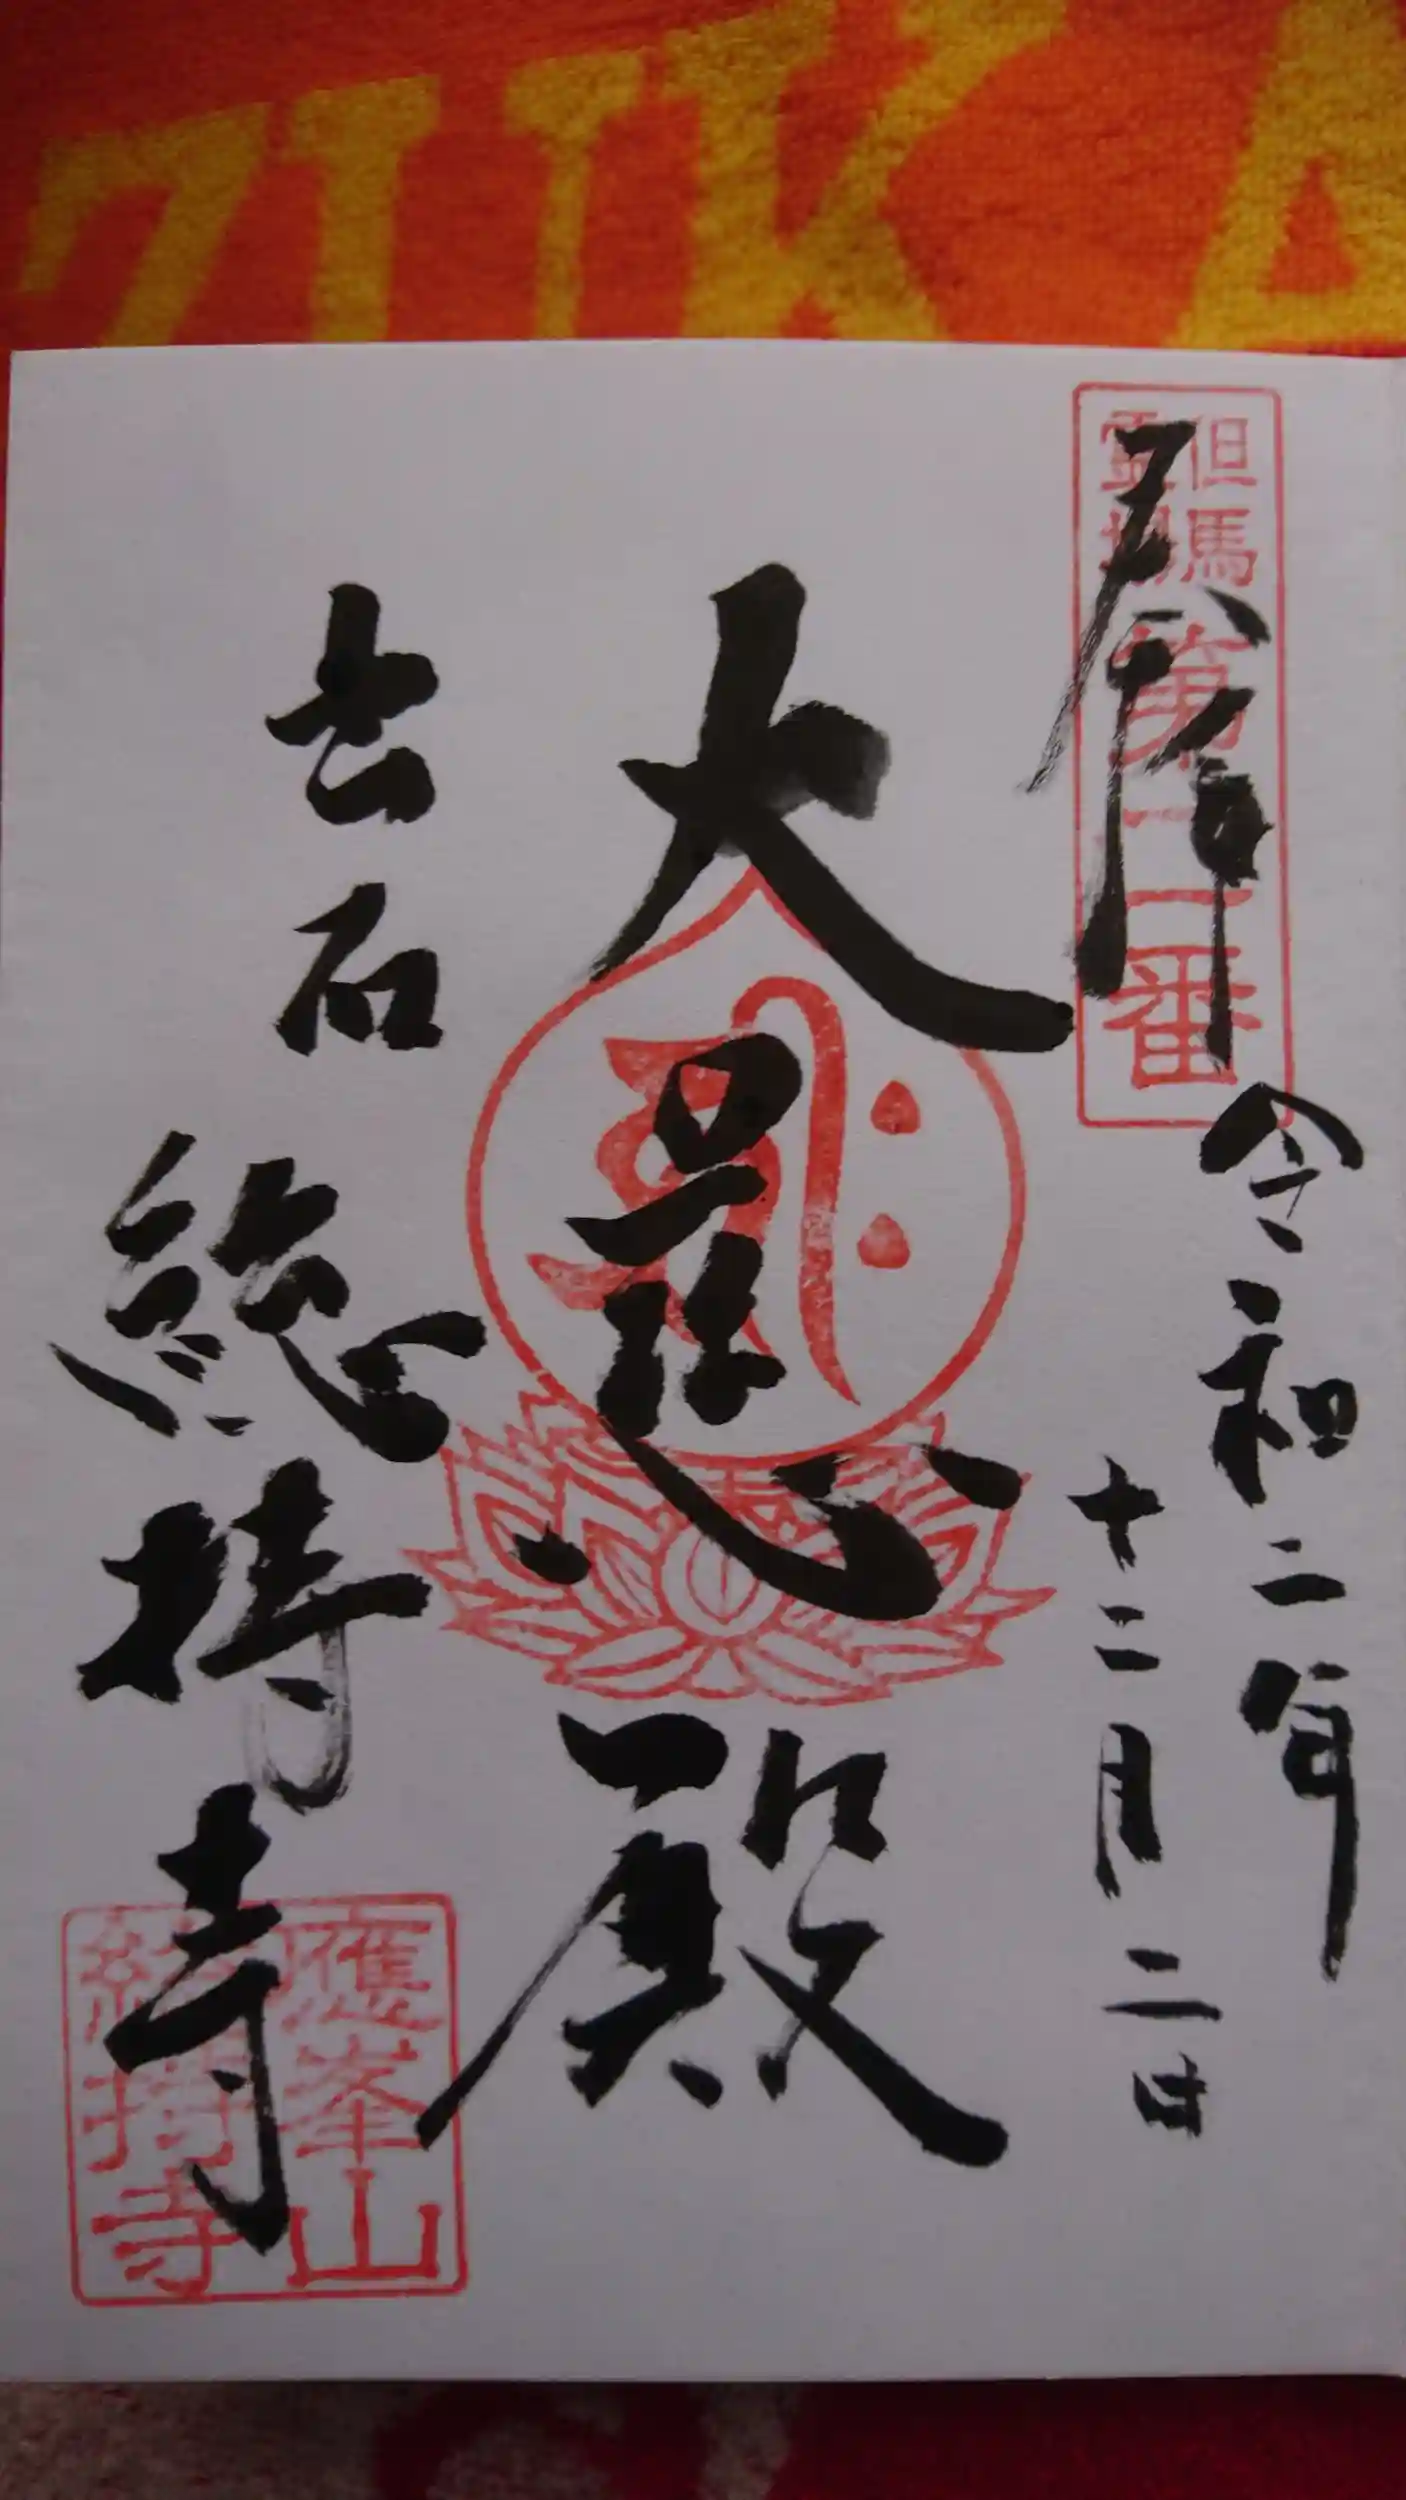 但馬
霊場
第二番
奉拝
令和二年
十二月二日
大悲殿
出石
総持寺
應峯山
総持寺